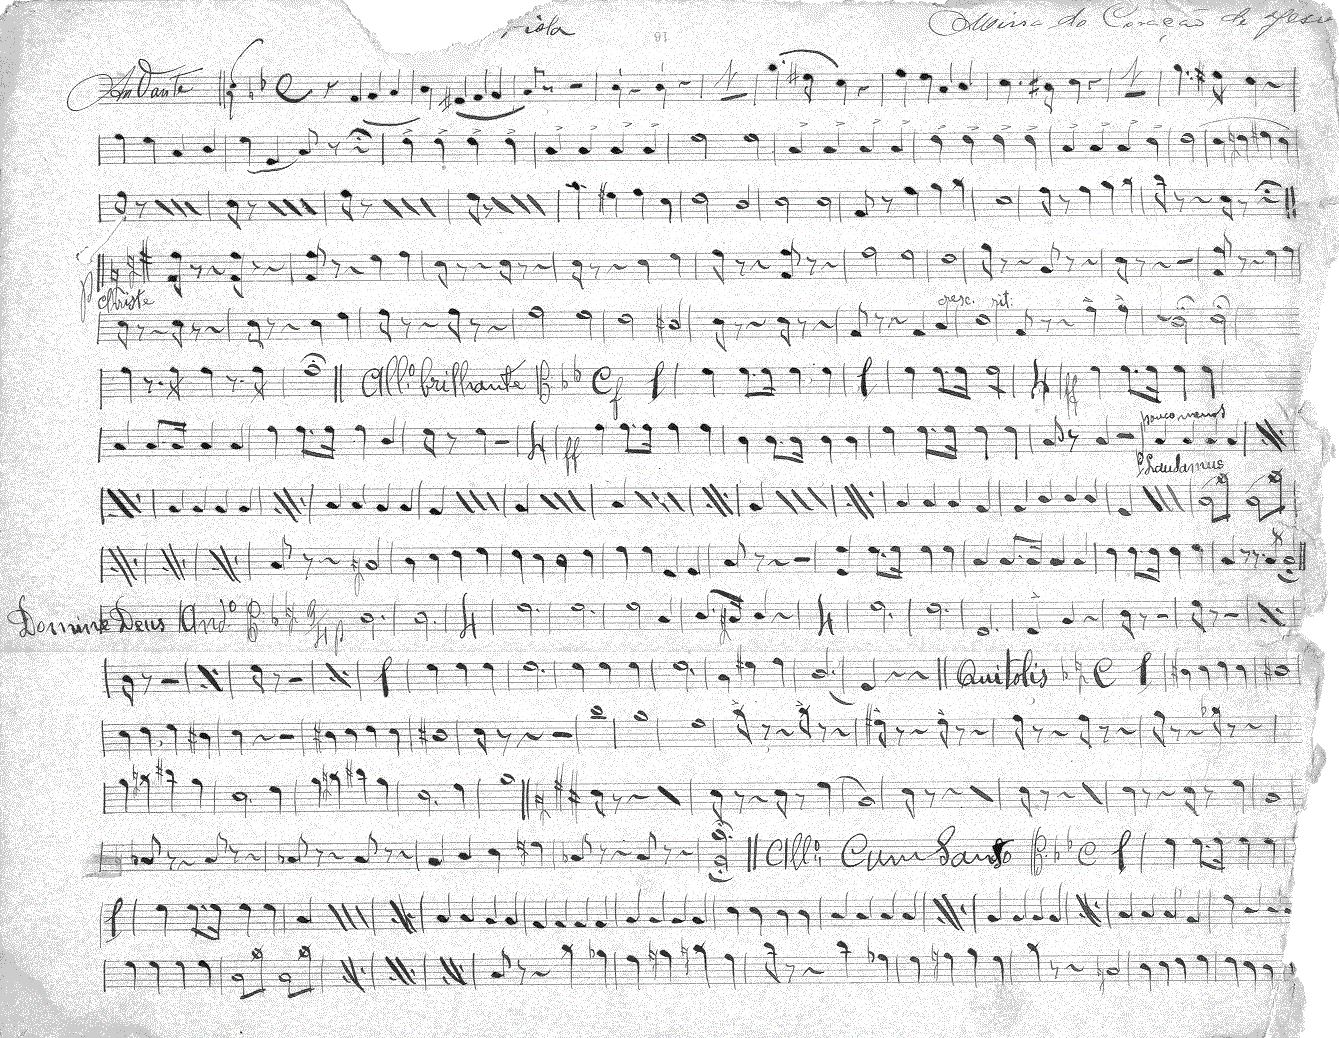 Viola
Missa do Coração de Jesus
Andante
Christe
cresc. rit.
All.º brilhante
ff
ff
pouco menos
Laudamus
Domine Deus And.º
Qui tolis
All.º Cum Santo